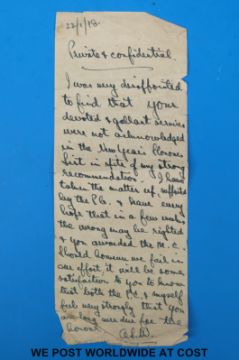 22/1/18.
Private & confidential.
I was very disappointed
to find that your
devoted & gallant services
were not acknowledged
in the New Year's Honours
list in spite of my strong
recommendation. I have
taken the matter up,
by the & have every
hope that in a few weeks
the wrong may be righted
& you awarded the M.C.
Should however we fail in
our effort it will be some
satisfaction to you to know
that both the & myself
feel very strongly that you
are long over due for the
honour.
WE POST WORLDWIDE AT COST